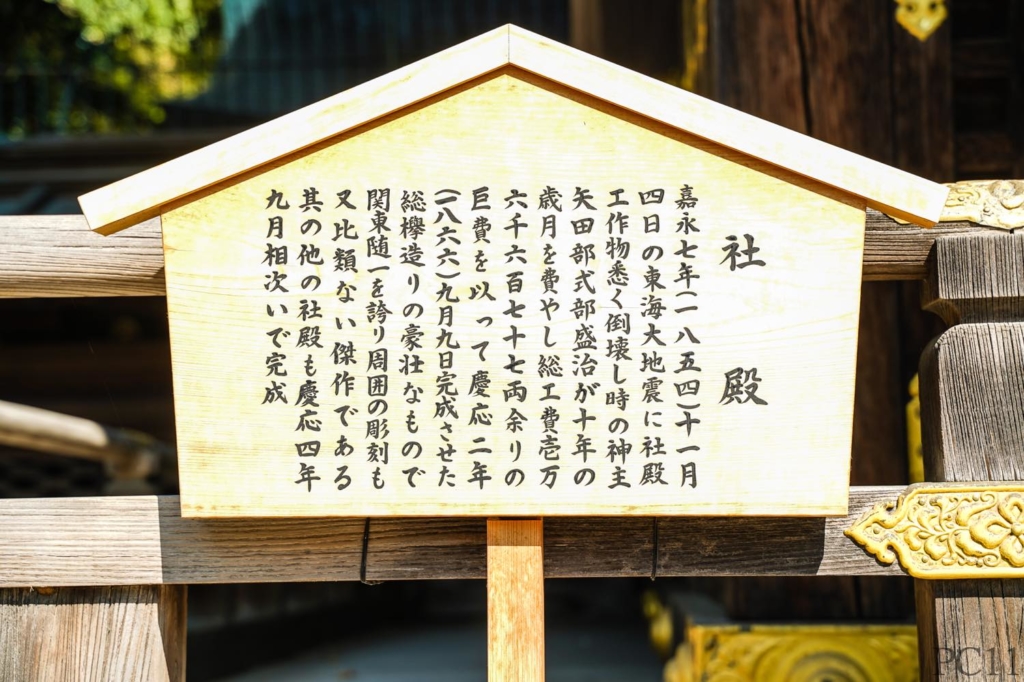 社殿
嘉永七年(一八五四)十一月
四日の東海大地震に社殿
工作物悉く倒壊し時の神主
矢田部式部盛治が十年の
歳月を費やし総工費壱万
六千六百七十七両余りの
巨費を以って慶応二年
(一八六六)九月九日完成させた
総欅造りの豪壮なもので
関東随一を誇り周囲の彫刻も
又比類ない傑作である
其の他の社殿も慶応四年
九月相次いで完成
PC11